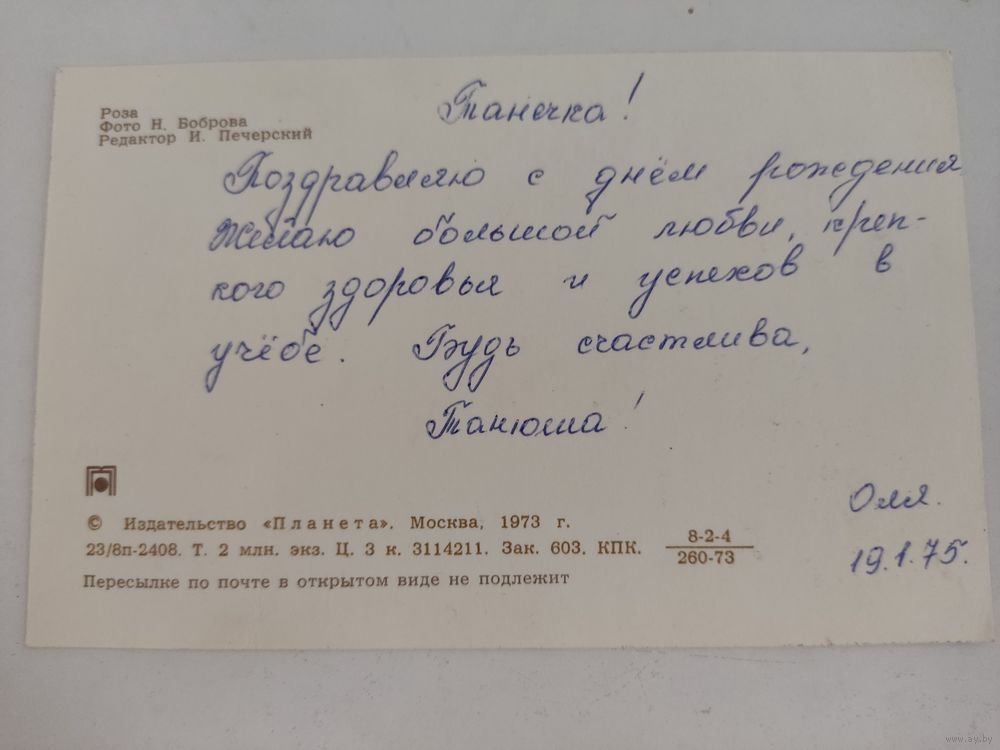 Роза
Фото Н. Боброва
Редактор И. Печерский
Танечка!
Поздравляю с днём рождения
Желаю большой любви, креп-
кого здоровья и успехов в
учёбе. Будь счастлива,
Танюша!
Оля.
19.1.75.
© Издательство «Планета». Москва, 1973 г.
23/8п-2408. Т. 2 млн. экз. Ц. 3 к. 3114211. Зак. 603. КПК.
8-2-4
260-73
Пересылке по почте в открытом виде не подлежит
www.ay.by